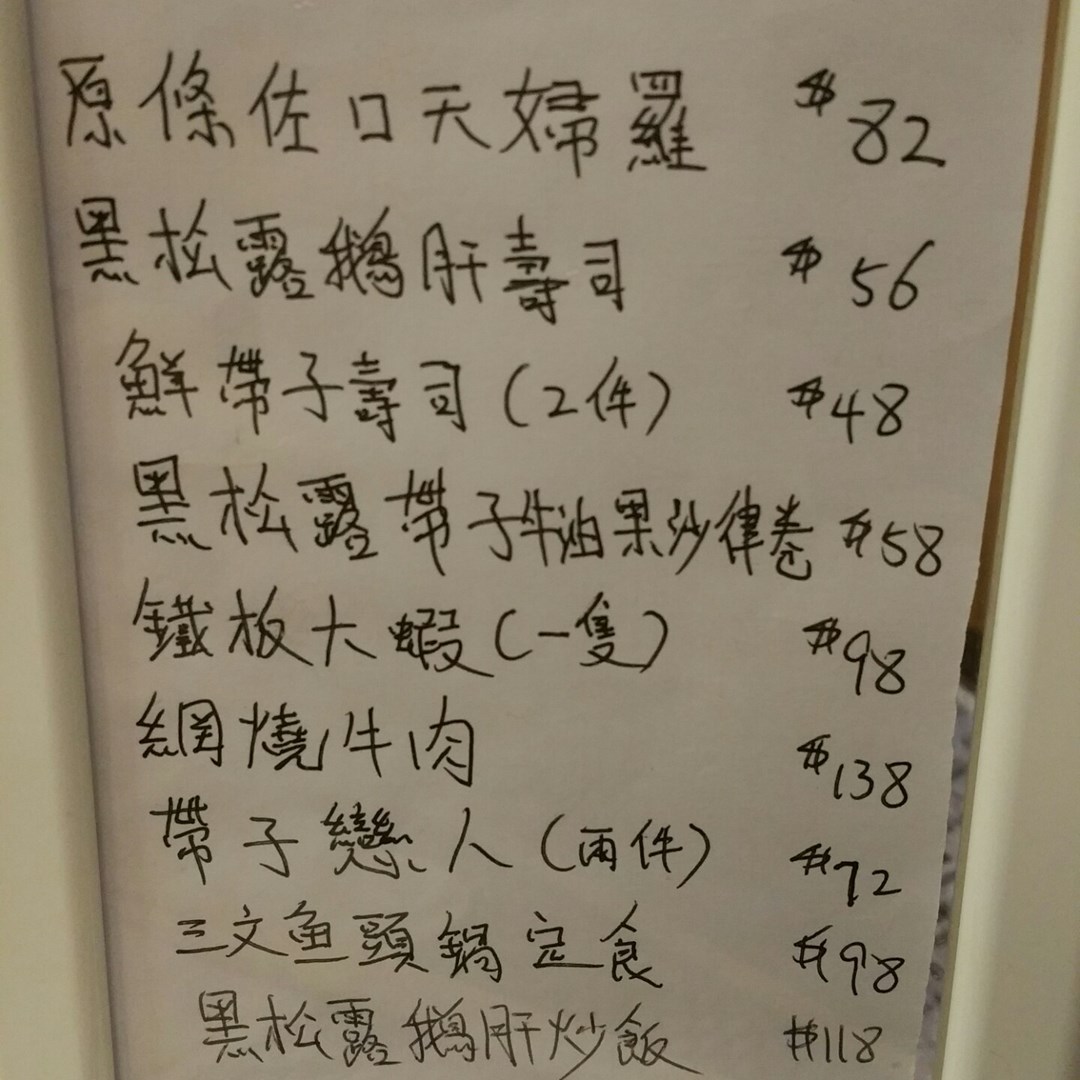 原條佐口天婦羅 $82
黑松露鵝肝壽司 $56
鮮帶子壽司(2件) $48
黑松露帶子牛油果沙律卷 $58
鐵板大蝦(一隻) $98
網燒牛肉 $138
帶子戀人(兩件) $72
三文鱼頭鍋定食 $98
黑松露鵝肝炒飯 $118